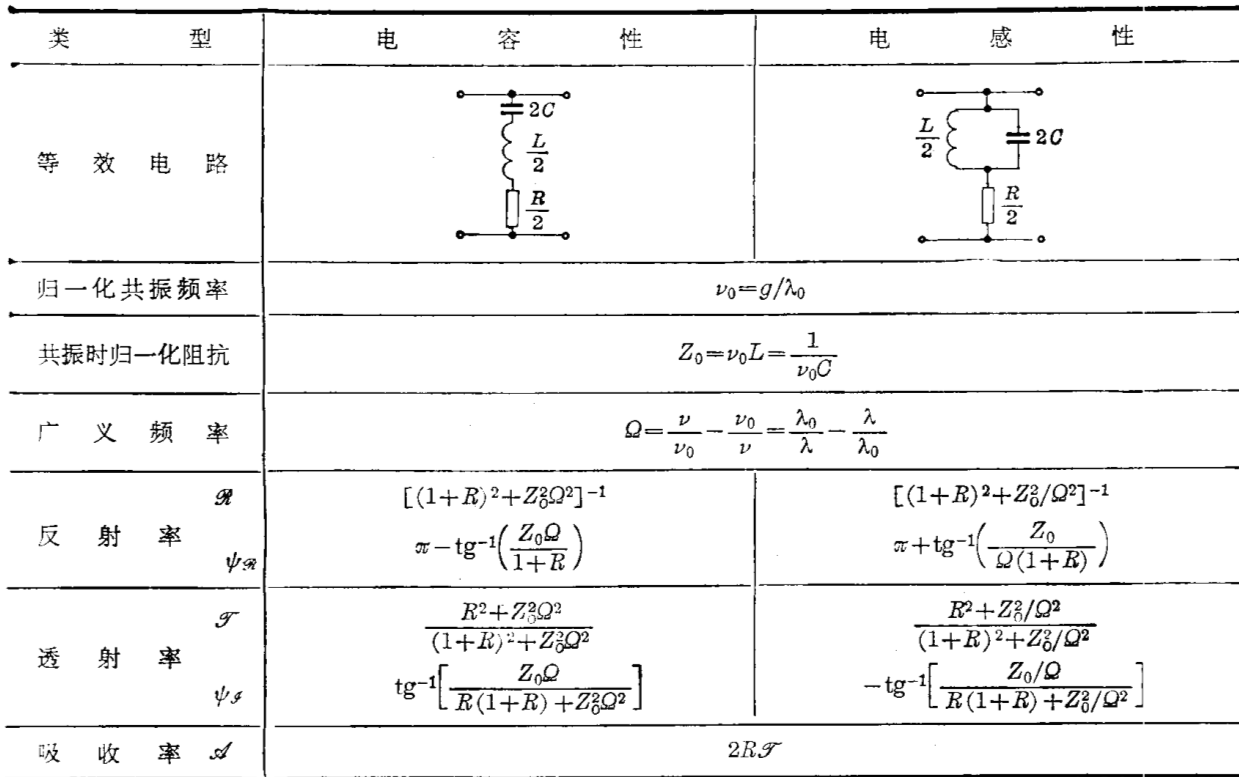 类型 电容性 电感性
等效电路
2C
L/2
R/2
L/2
2C
R/2
归一化共振频率 ν₀=g/λ₀
共振时归一化阻抗 Z₀=ν₀L=1/(ν₀C)
广义频率 Ω=ν/ν₀−ν₀/ν=λ₀/λ−λ/λ₀
反射率 ℛ [(1+R)²+Z₀²Ω²]⁻¹ [(1+R)²+Z₀²/Ω²]⁻¹
ψ_ℛ π−tg⁻¹(Z₀Ω/(1+R)) π+tg⁻¹(Z₀/(Ω(1+R)))
透射率 𝒯 (R²+Z₀²Ω²)/((1+R)²+Z₀²Ω²) (R²+Z₀²/Ω²)/((1+R)²+Z₀²/Ω²)
ψ_𝒯 tg⁻¹[Z₀Ω/(R(1+R)+Z₀²Ω²)] −tg⁻¹[(Z₀/Ω)/(R(1+R)+Z₀²/Ω²)]
吸收率 𝒜 2R𝒯